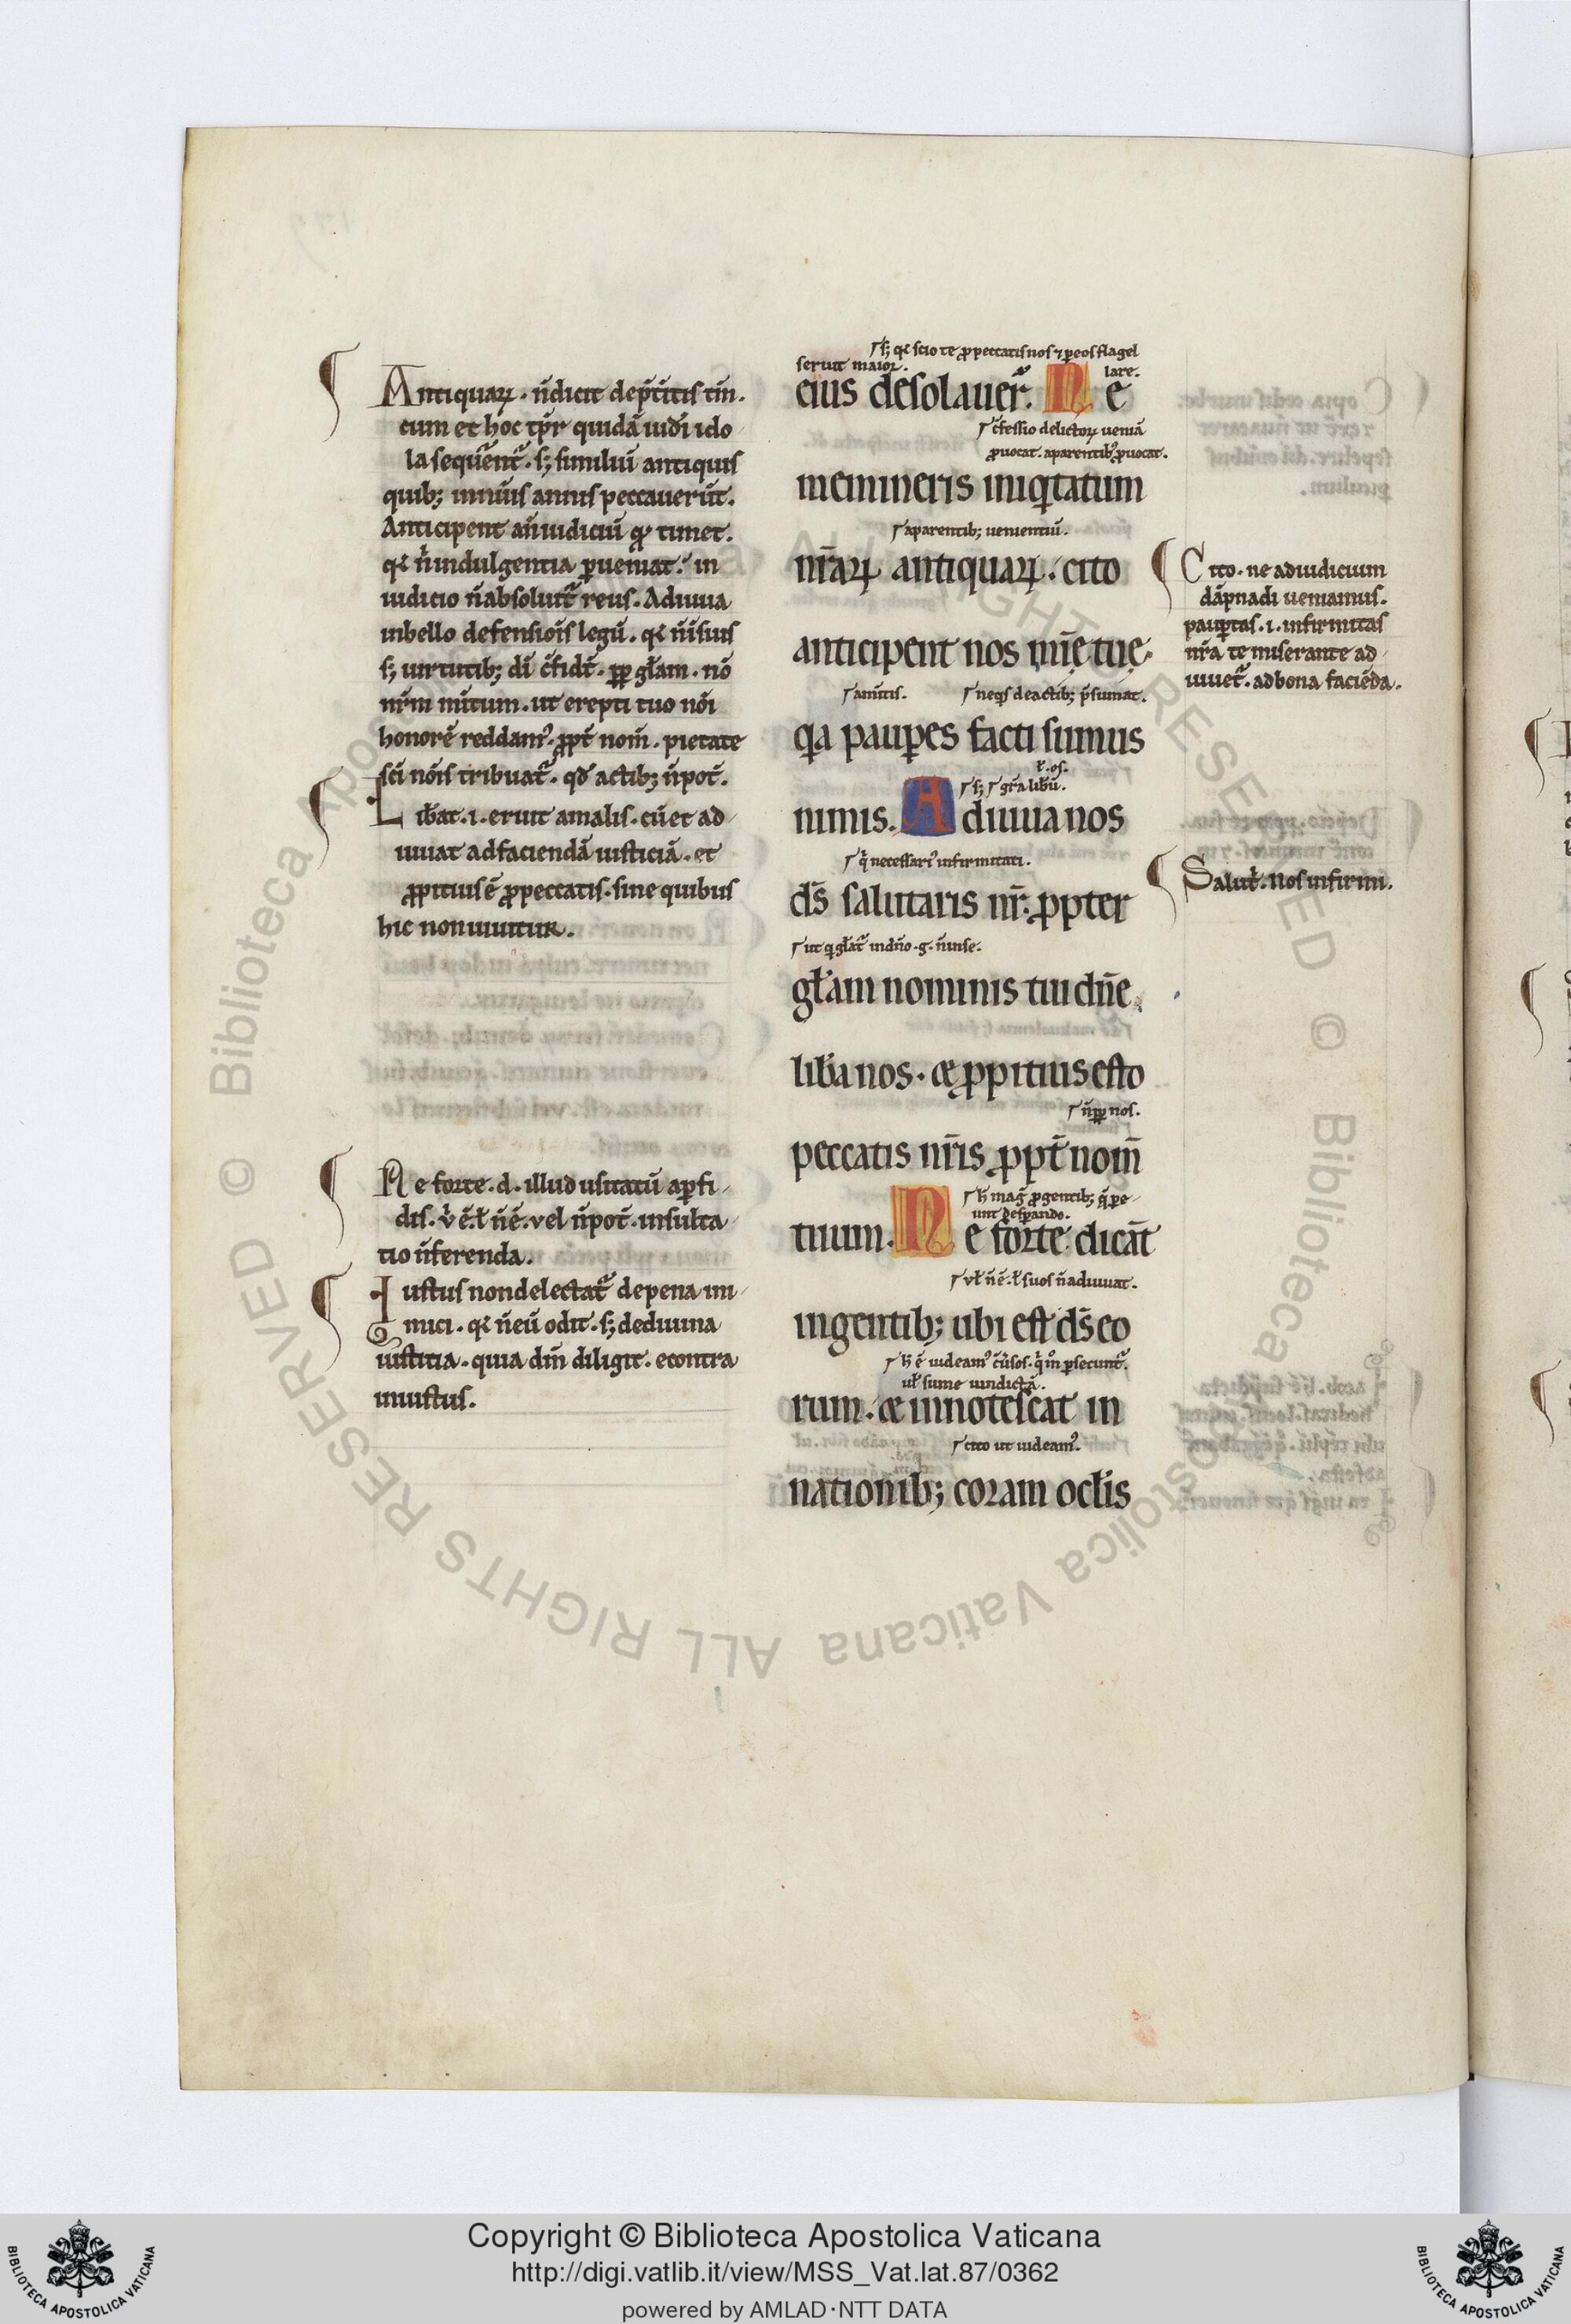 Antiquaꝝ · n̄ dicit de p̄t̄itis tm̄.
cum et hoc tp̄r quidā iud̄i ido
la sequent̄. s; similiū antiquis
quib; īnūis annis peccauerūt.
Anticipent añ iudiciū qđ timet.
q̄ n̄ indulgentia p̱ueniat. in
iudicio n̄ absoluit̄ reus. Adiuua
in bello defensiōis legū. q̄ n̄ i suis
s; uirtutib; dī c̄fidt̄. ꝓp gl̄am. nō
nr̄m m̄itum. ut erepti tuo nōi
honorē reddam᾽. ꝓpt̄ nom̄. pietate
sc̄i nōis tribuat̄. qđ actib; n̄ pot̄.
Lib̄at. i. eruit a malis. cū et ad
iuuat ad faciendā iusticiā. et
ꝓpitius ē ꝓ peccatis. sine quibus
hic non uiuitur.
Ne forte. d. illud usitatū a p̱fi
dis. v̇ ē. ł n̄ ē. vel n̄ pot̄. insulta
tio n̄ ferenda.
Iustus non delectat̄ de pena ini
mici. q̄ n̄ eū odit. s; de diuina
iustitia. quia dm̄ diligit. econtra
iniustus.
s; q̄ scio te ꝓ peccatis nos ⁊ p̱ eos flagel
seruit maior.
lare.
eius desolauer̄. Ne
c̄fessio delictoꝝ ueniā
ꝓuocat. a parentib᾽ ꝓuocat.
memineris iniqͥtatum
a parentib; uenientiū.
nr̄aꝝ antiquaꝝ. cito
anticipent nos mīe̜ tue̜
neqs de actib; p̄sumat.
qͣa paup̱es facti sumus
s; gr̄a lib̄ū.
nimis. Adiuua nos
q̇ necessari᾽ infirmitati.
ds̄ salutaris nr̄. ꝓpter
ut q̇ gl̄at̄ in dn̄o. g. n̄ in se.
gl̄am nominis tui dn̄e
lib̄a nos. & ꝓpitius esto
n̄ ꝓp nos.
peccatis nr̄is ꝓpt̄ nom̄
h̄ mag̅ ꝓ gentib; q̄ pe
unt desp̱ando.
tuum. Ne forte dicāt
vł n̄ ē. ł suos n̄ adiuuat.
in gentib; ubi est ds̄ eo
h̄ ē uideam᾽ c̄ūsos. q̇ m̊ p̱secunt̄.
uł sume uindictā.
rum. & innotescat in
cito ut uideam᾽.
nationib; coram ocl̄is
Cito. ne ad iudicium
dāpnādi ueniamus.
paup̱tas. i. infirmitas
nr̄a te miserante ad
iuuet̄. ad bona faciēda.
Salut̄. nos infirmi.
© Biblioteca Apostolica Vaticana ALL RIGHTS RESERVED © Biblioteca Apostolica Vaticana ALL RIGHTS RESERVED
BIBLIOTECA APOSTOLICA VATICANA
Copyright © Biblioteca Apostolica Vaticana
http://digi.vatlib.it/view/MSS_Vat.lat.87/0362
powered by AMLAD·NTT DATA
BIBLIOTECA APOSTOLICA VATICANA